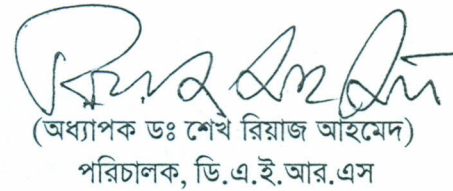 (অধ্যাপক ডঃ শেখ রিয়াজ আহমেদ)
পরিচালক, ডি.এ.ই.আর.এস